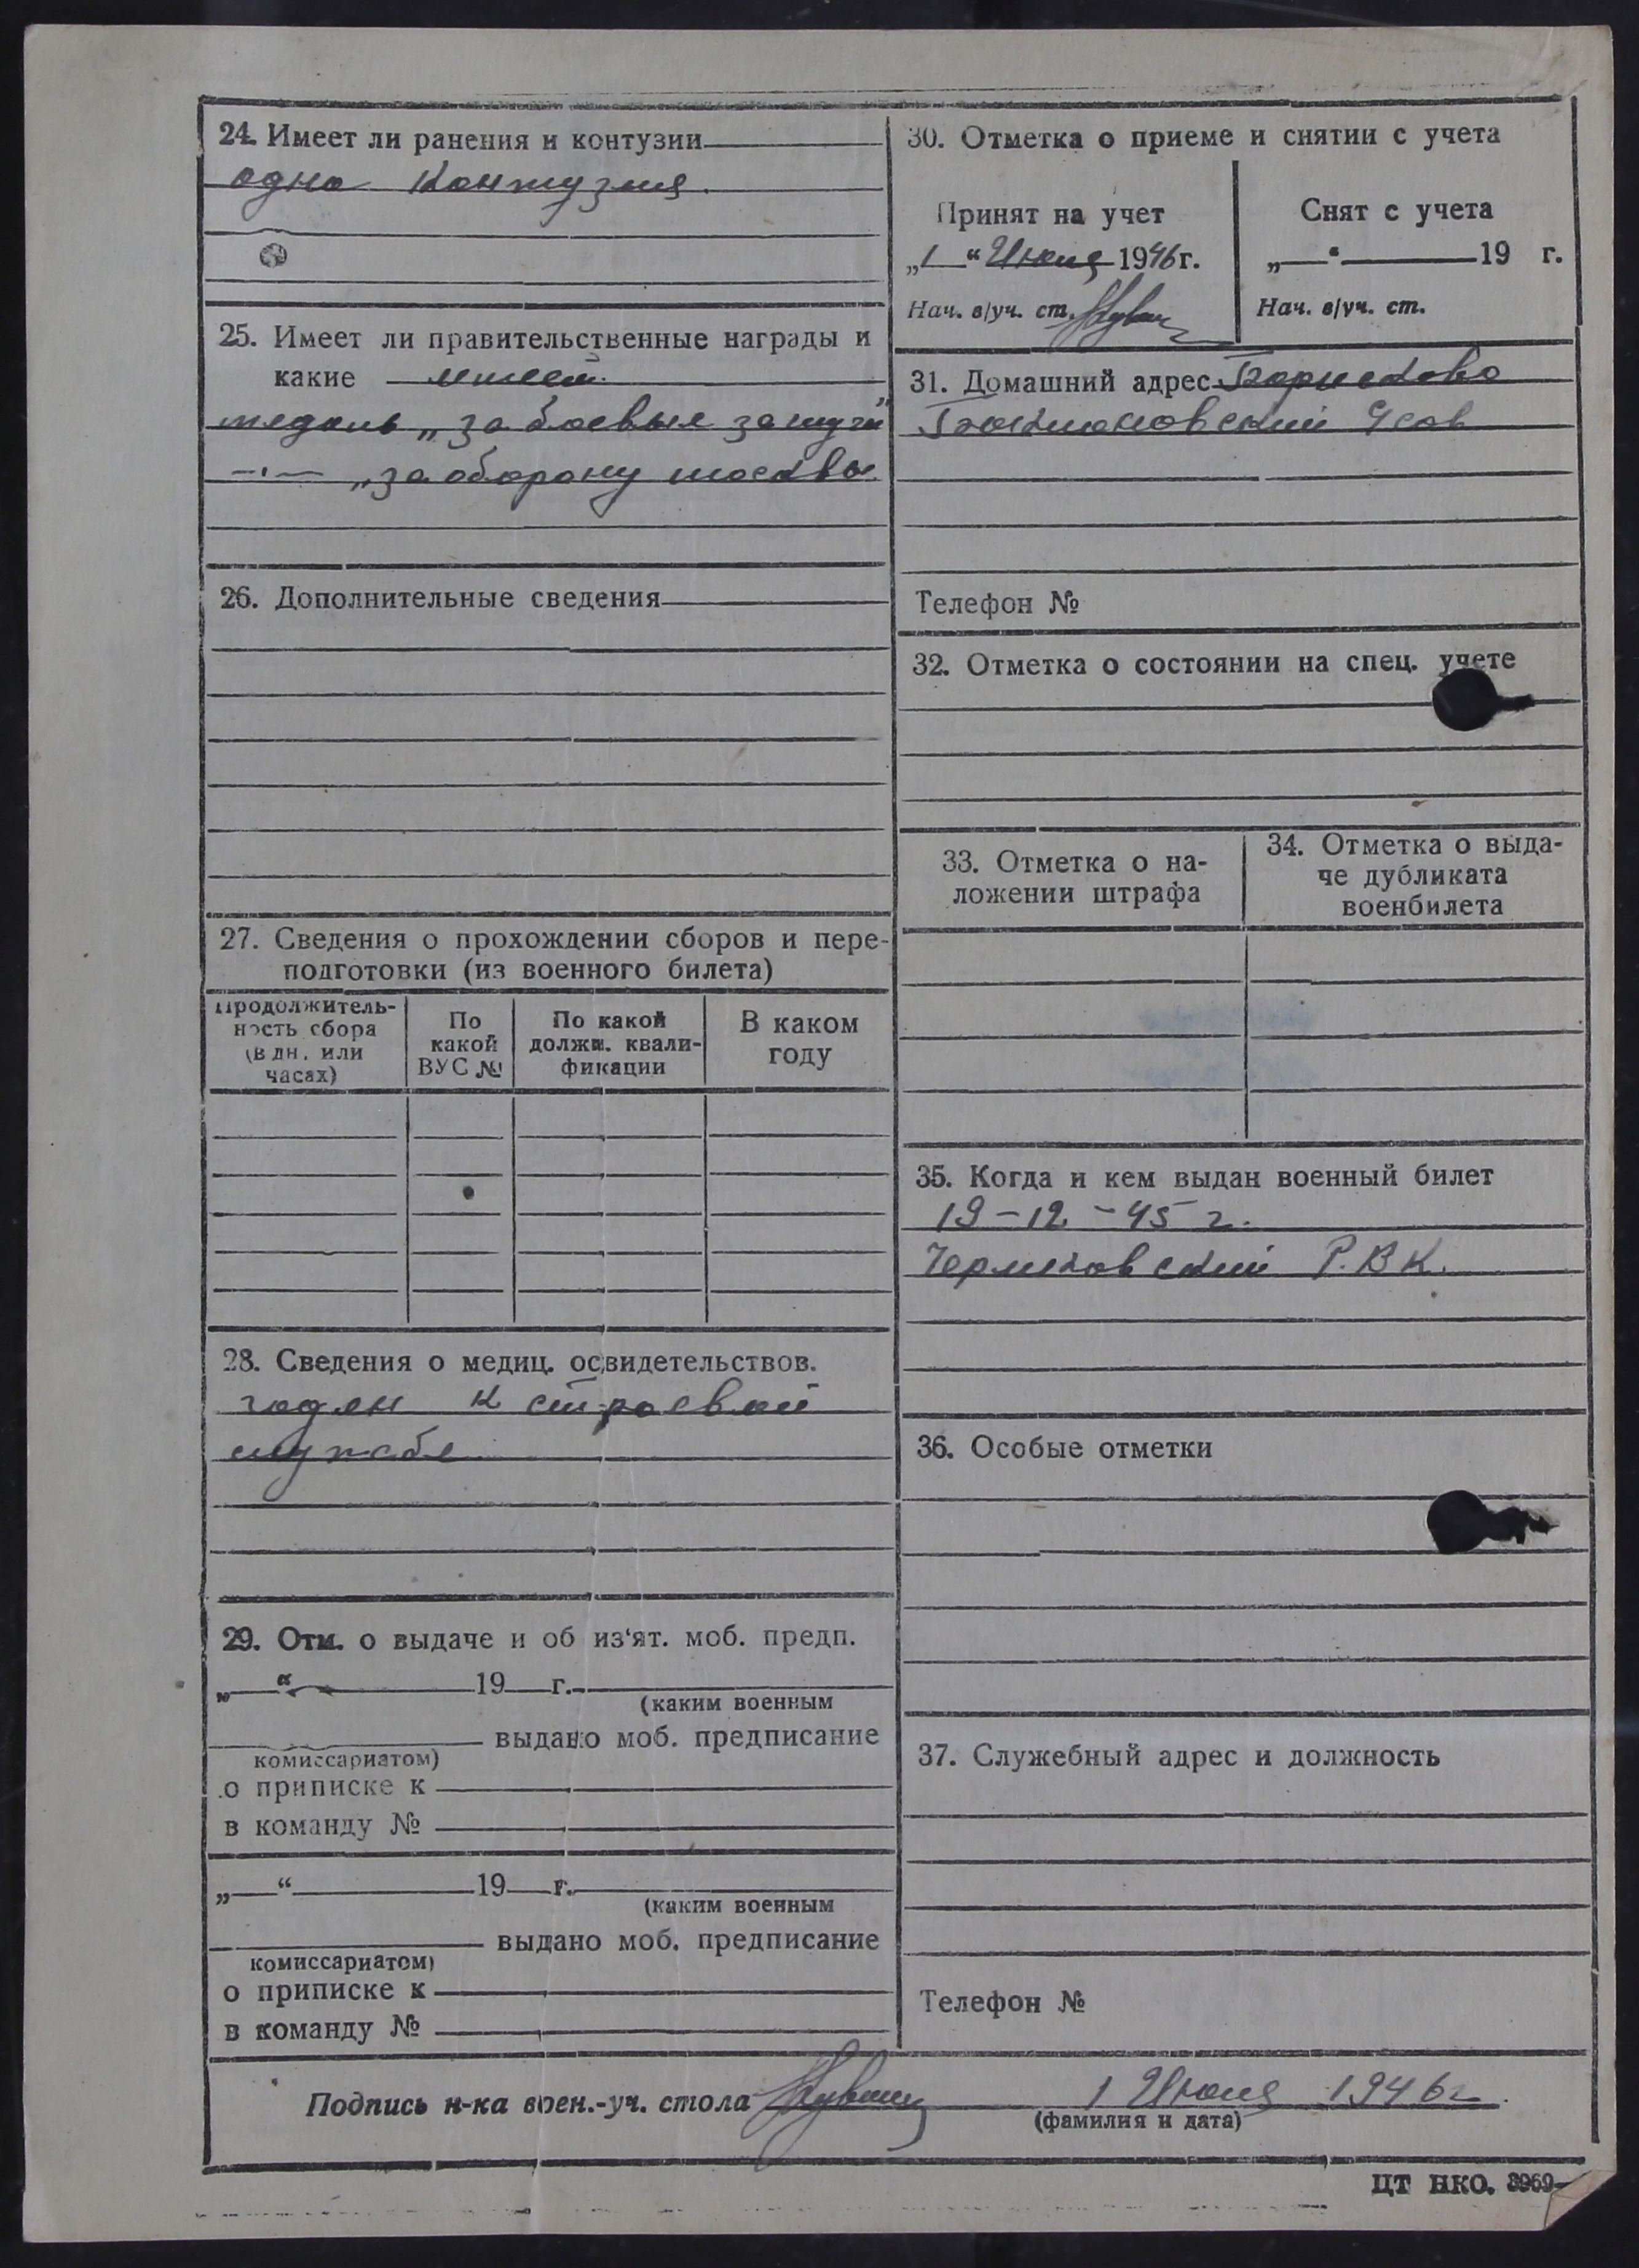 24. Имеет ли ранения и контузии
одна контузия.
25. Имеет ли правительственные награды и
какие имеет.
медаль „за боевые заслуги"
—·— „за оборону москвы
26. Дополнительные сведения
27. Сведения о прохождении сборов и пере-
подготовки (из военного билета)
Продолжитель-
ность сбора
(в дн. или
часах)
По
какой
ВУС №
По какой
должн. квали-
фикации
В каком
году
28. Сведения о медиц. освидетельствов.
годен к строевой
службе
29. Отм. о выдаче и об из'ят. моб. предп.
„ “ 19 г.
(каким военным
выдано моб. предписание
комиссариатом)
о приписке к
в команду №
„ “ 19 г.
(каким военным
выдано моб. предписание
комиссариатом)
о приписке к
в команду №
30. Отметка о приеме и снятии с учета
Принят на учет
„1 “ Июня 1946 г.
Нач. в/уч. ст.
Снят с учета
„ “ 19 г.
Нач. в/уч. ст.
31. Домашний адрес Борисково
Телефон №
32. Отметка о состоянии на спец. учете
33. Отметка о на-
ложении штрафа
34. Отметка о выда-
че дубликата
военбилета
35. Когда и кем выдан военный билет
19-12-45 г.
Р.В.К.
36. Особые отметки
37. Служебный адрес и должность
Телефон №
Подпись н-ка воен.-уч. стола 1 Июня 1946 г.
(фамилия и дата)
ЦТ НКО. 3969